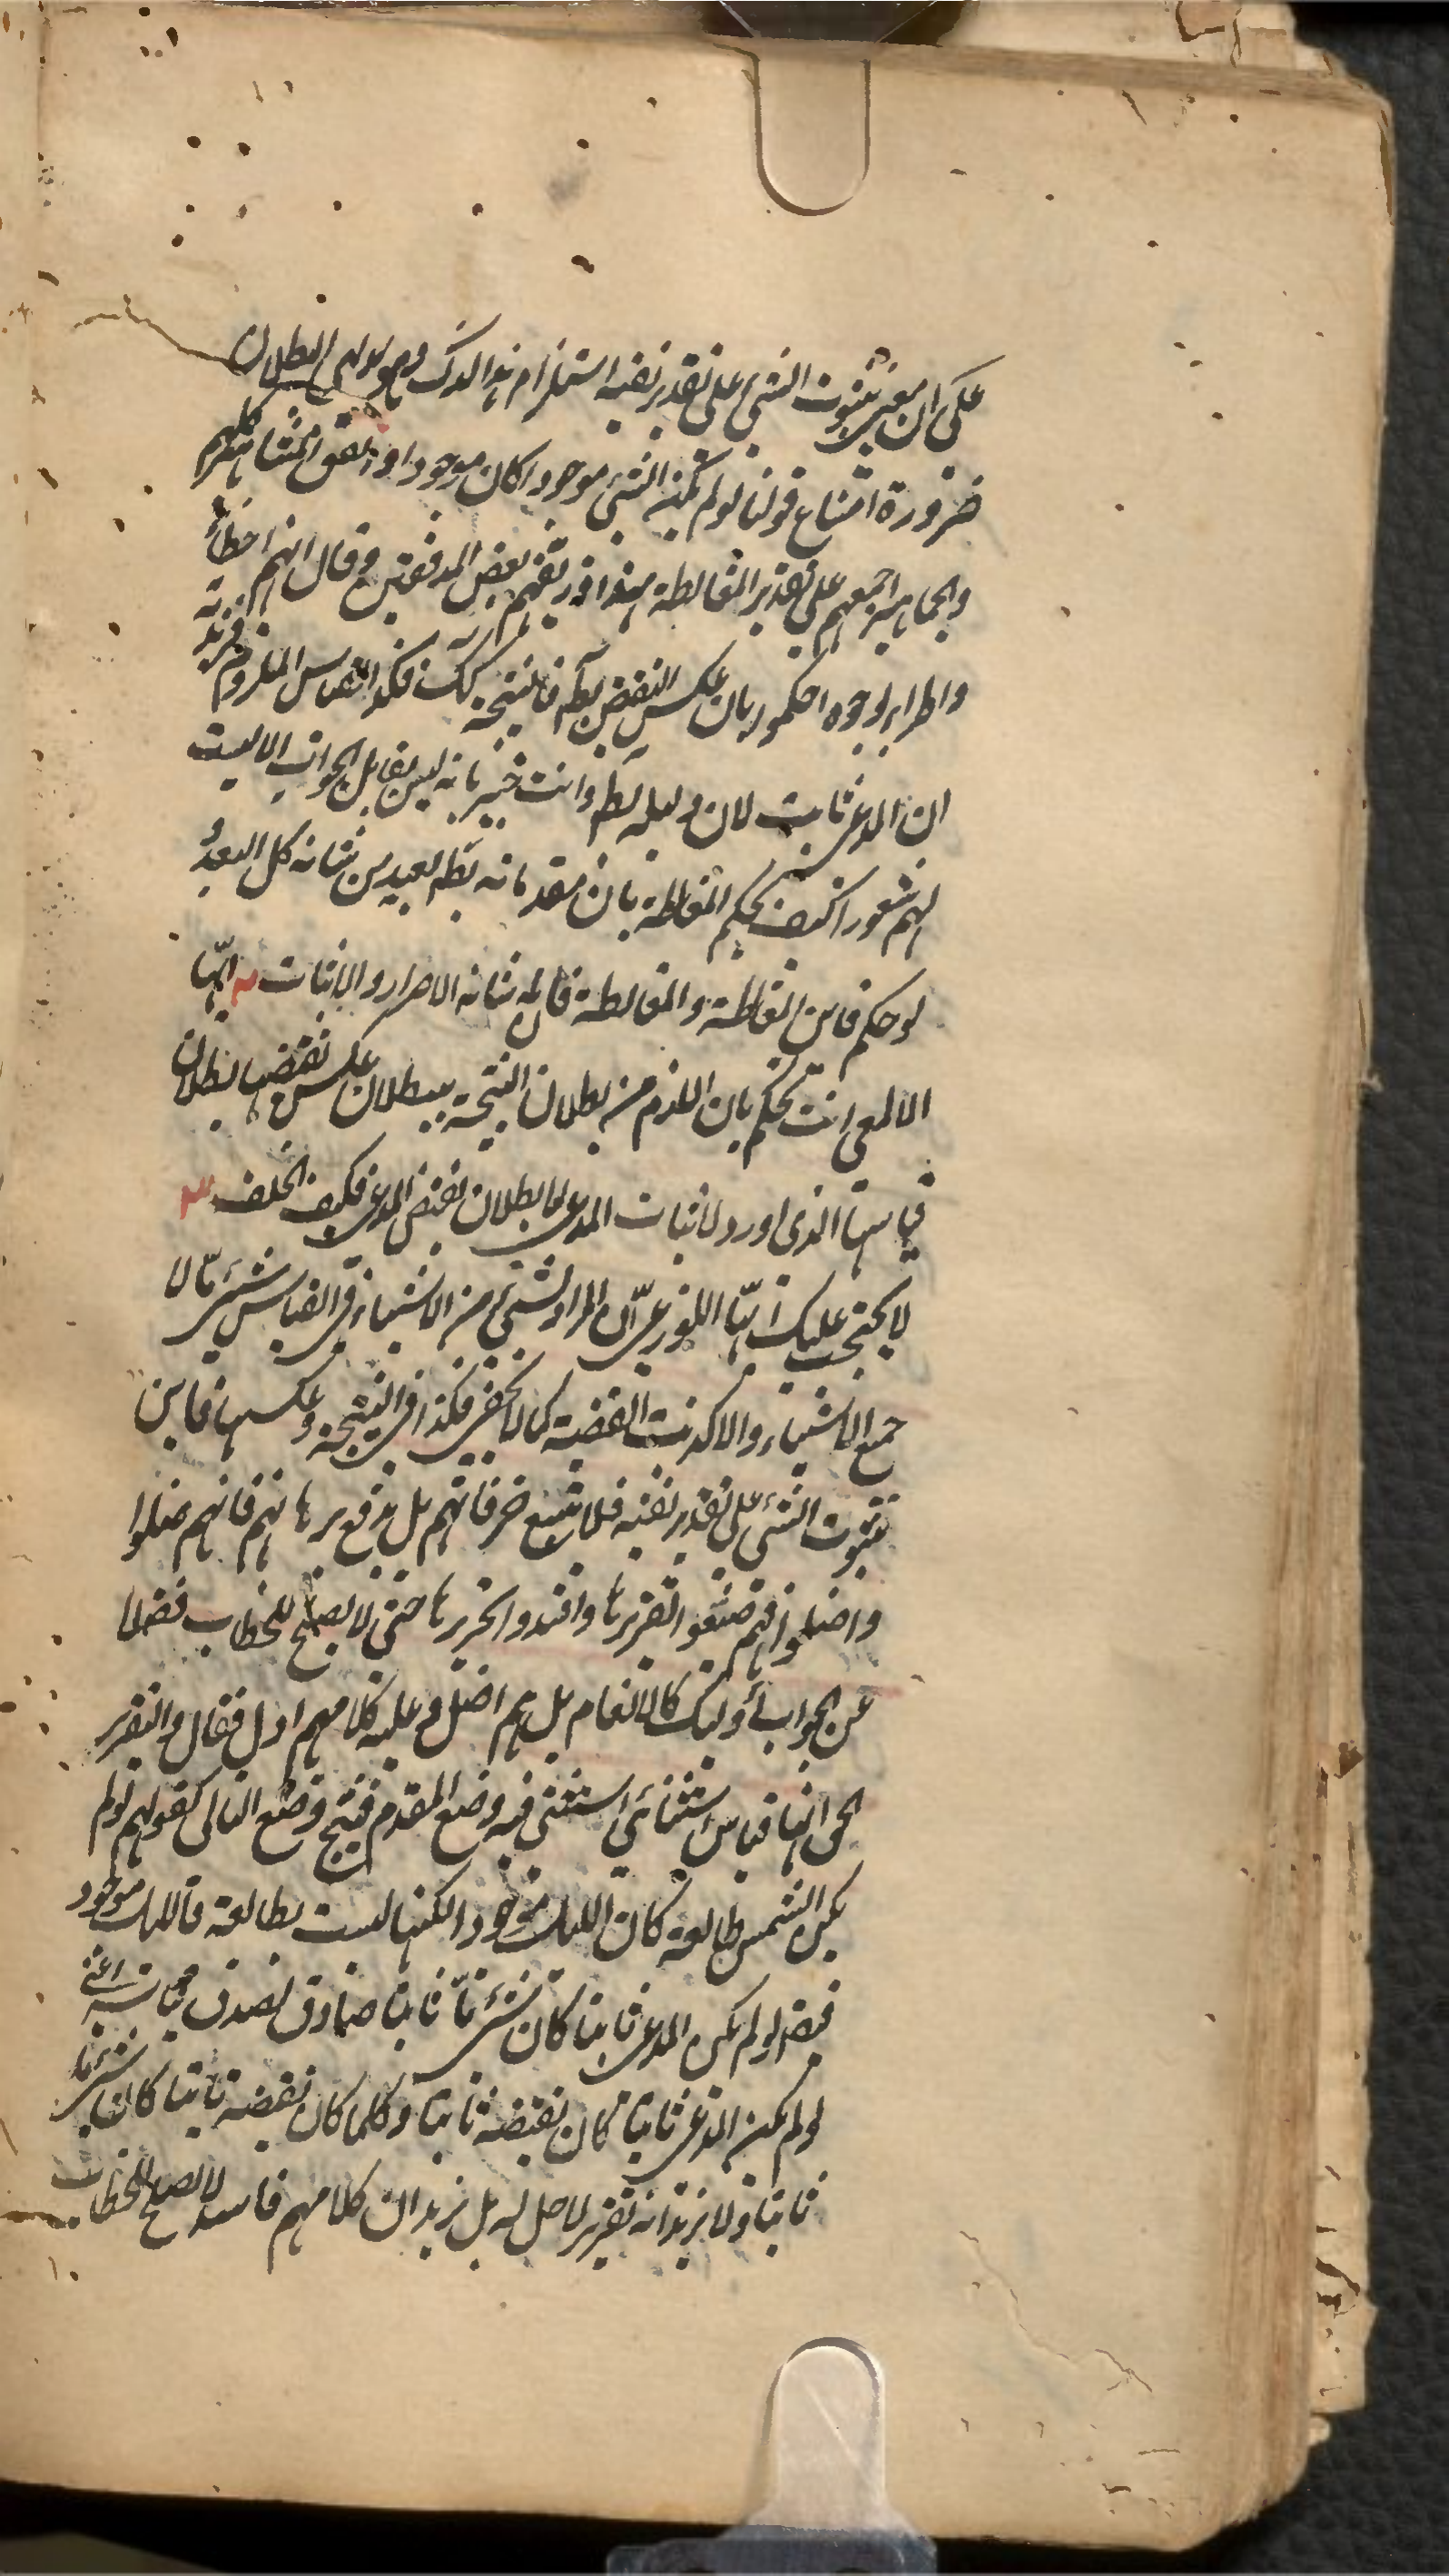 على ان معنى ثبوت الشئ على تقدير نقيضه استلزام هذا لذلك وهو بديهي البطلان
ضرورة امتناع قولنا لو لم يكن الشئ موجودا كان موجودا واتفق المشاهير كلهم
والجماهير اجمعهم على تقدير المغالطة هذا وزيفهم بعض المدققين وقال انهم اخطأ
بوجوه احكمور بان عكس النقيض بط فالنتيجة كك فكذا القياس الملزوم
ان المدعى ثابت لان دليله بط وانت خبير بانه ليس بقابل الجواب الا ليست
لهم شعورا كيف يحكم المغالطة بان مقدماته بط بعيد من شانه كل البعد و
لو حكم فاين المغالطة والمغالطة فان شانه الاصرار والاثبات ايها
الالمعي انت تحكم بان اللازم من بطلان النتيجة ببطلان عكس نقيضها بطلان
قياسها الذي اورد لاثبات المدعى لا بطلان نقيض المدعى فكيف الخلف
لا يحتجب عليك ايها اللوذعي ان المراد بشئ من الاشياء في القياس شئ ما لا
جميع الاشياء والا كذبت القضية كما لا يخفى فكذا في النتيجة وعكسها فاين
ثبوت الشئ على تقدير نقيضه فلا تتبع خرفاتهم بل ندفع برهانهم فانهم ضلوا
واضلوا فهم ضيعوا تقريرها وافسدوا تحريرها حتى لا يصلح للخطاب فضلا
عن الجواب أولئك كالانعام بل هم اضل وعليه كلامهم ادل فقال والتقرير
الحق انها قياس استثنائي استثنى فيه وضع المقدم فينتج وضع التالي كقولهم لو لم
يكن الشمس طالعة كان الليل موجودا لكنها ليست بطالعة فالليل موجود
فيقه لو لم يكن المدعى ثابتا كان شئ ما ثابتا صادق لصدق قياسه اعني
لو لم يكن المدعى ثابتا كان نقيضه ثابتا وكلما كان نقيضه ثابتا كان شئ ما
ثابتا ولا نريد انه تقرير لا حل له بل نريد ان كلامهم فاسد لا يصلح للخطاب